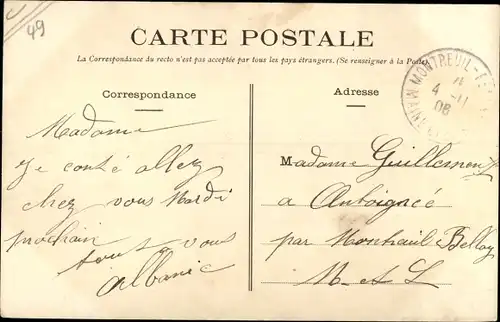 49
CARTE POSTALE
La Correspondance du recto n'est pas acceptée par tous les pays étrangers. (Se renseigner à la Poste).
Correspondance
Adresse
MONTREUIL-
4 -11
08
Madame
Je conté allez
chez vous Mardi
prochain
tout a vous
Albanie
Madame Guillemont
a Antoignée
par Montreuil Bellay
M- et L